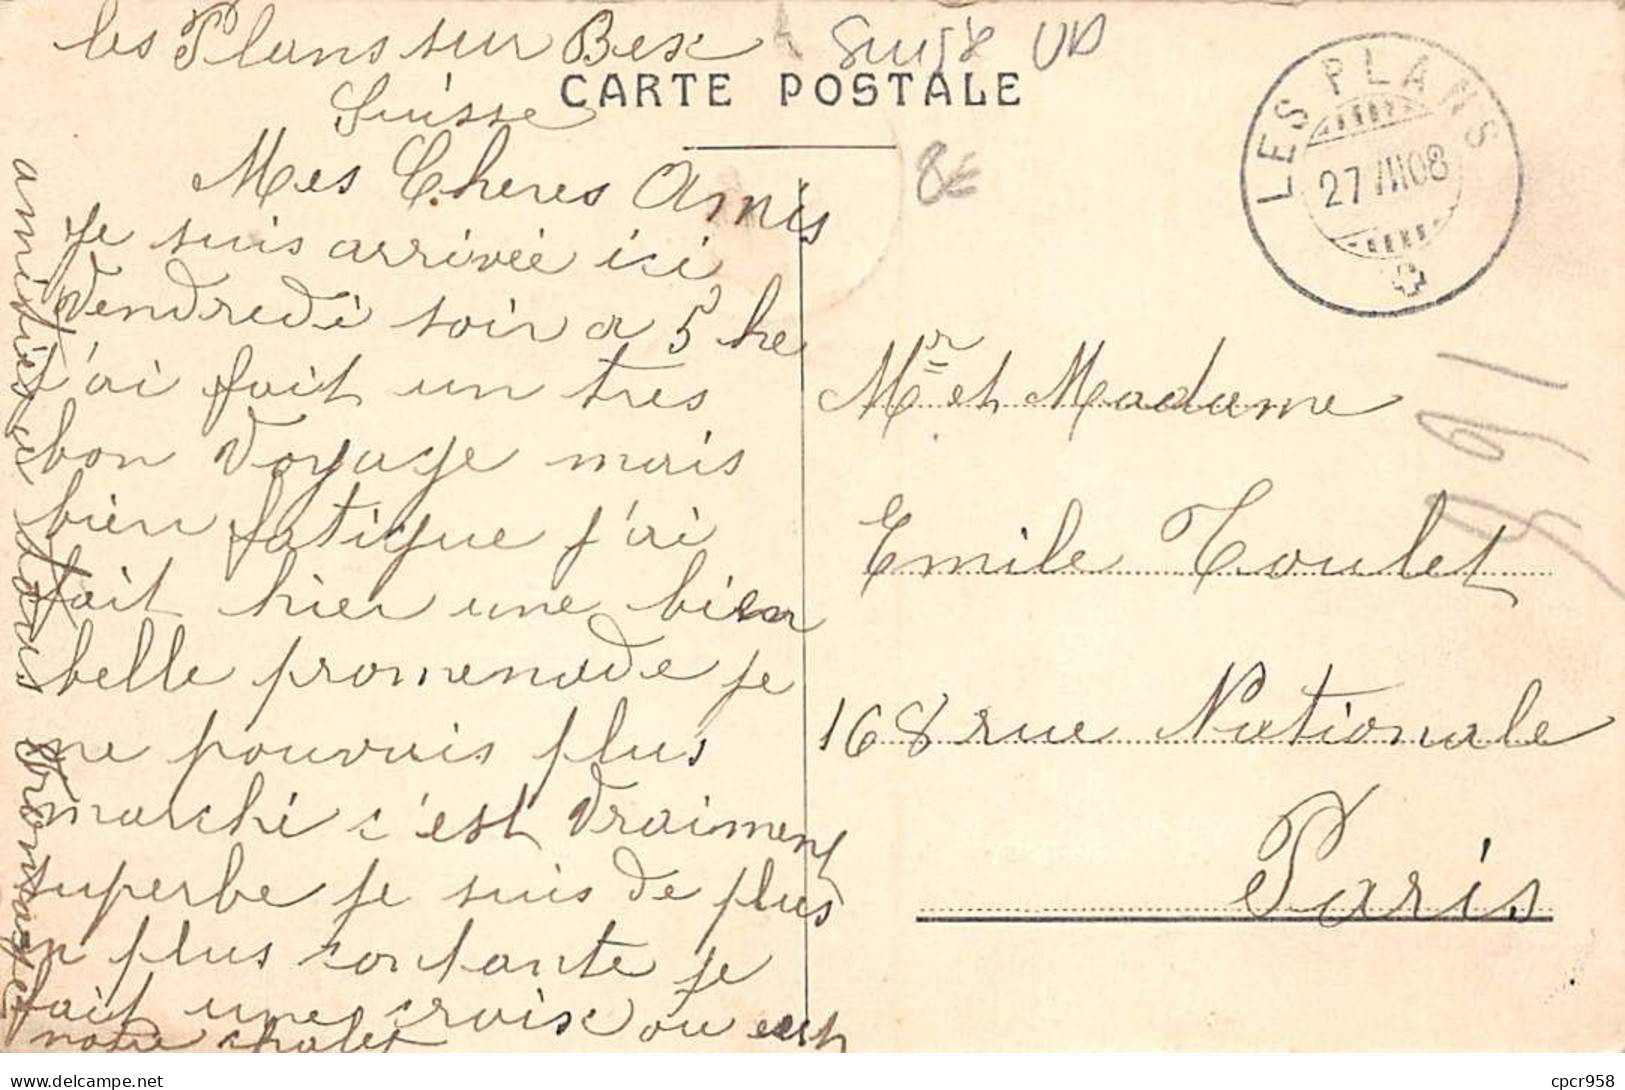 les Plans sur Bex
Suisse
CARTE POSTALE
8€
LES PLANS
27 VII 08
Mes Cheres Amis
je suis arrivée ici
Vendredi soir a 5 he
j'ai fait un tres
bon Voyage mais
bien fatigue j'ai
fait hier une bien
belle promenade je
ne pouvais plus
marché c'est Vraiment
superbe je suis de plus
en plus contante je
fait une croix ou est
notre chalet
amitiés a tous
Mr et Madame
Emile Toulet
168 rue Nationale
Paris
cpcr958